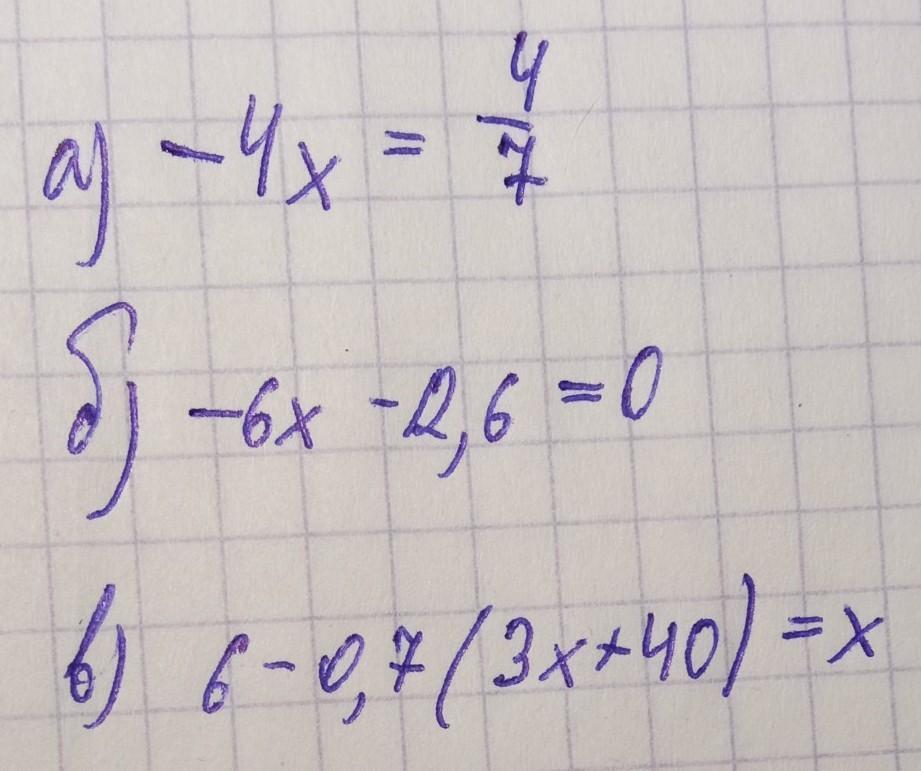 а) -4x = 4/7
б) -6x - 2,6 = 0
в) 6 - 0,7(3x + 40) = x